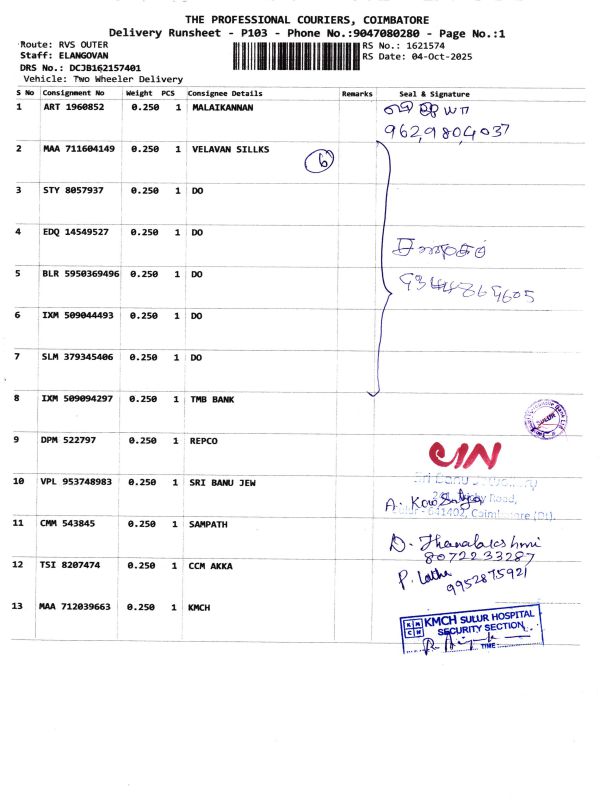 THE PROFESSIONAL COURIERS, COIMBATORE
Delivery Runsheet - P103 - Phone No.:9047080280 - Page No.:1
Route: RVS OUTER RS No.: 1621574
Staff: ELANGOVAN RS Date: 04-Oct-2025
DRS No.: DCJB162157401
Vehicle: Two Wheeler Delivery
S No Consignment No Weight PCS Consignee Details Remarks Seal & Signature
1 ART 1960852 0.250 1 MALAIKANNAN
9629804037
2 MAA 711604149 0.250 1 VELAVAN SILLKS 6
3 STY 8057937 0.250 1 DO
4 EDQ 14549527 0.250 1 DO
5 BLR 5950369496 0.250 1 DO
6 IXM 509044493 0.250 1 DO
7 SLM 379345406 0.250 1 DO
8 IXM 509094297 0.250 1 TMB BANK
SULUR
9 DPM 522797 0.250 1 REPCO
10 VPL 953748983 0.250 1 SRI BANU JEW
Sri Banu Jewellery
Road,
Sulur - 641402, Coimbatore (Dt).
11 CMM 543845 0.250 1 SAMPATH
D. Thanalakshmi
8072233287
12 TSI 8207474 0.250 1 CCM AKKA
P. Latha
9952875921
13 MAA 712039663 0.250 1 KMCH
KMCH SULUR HOSPITAL
SECURITY SECTION
TIME